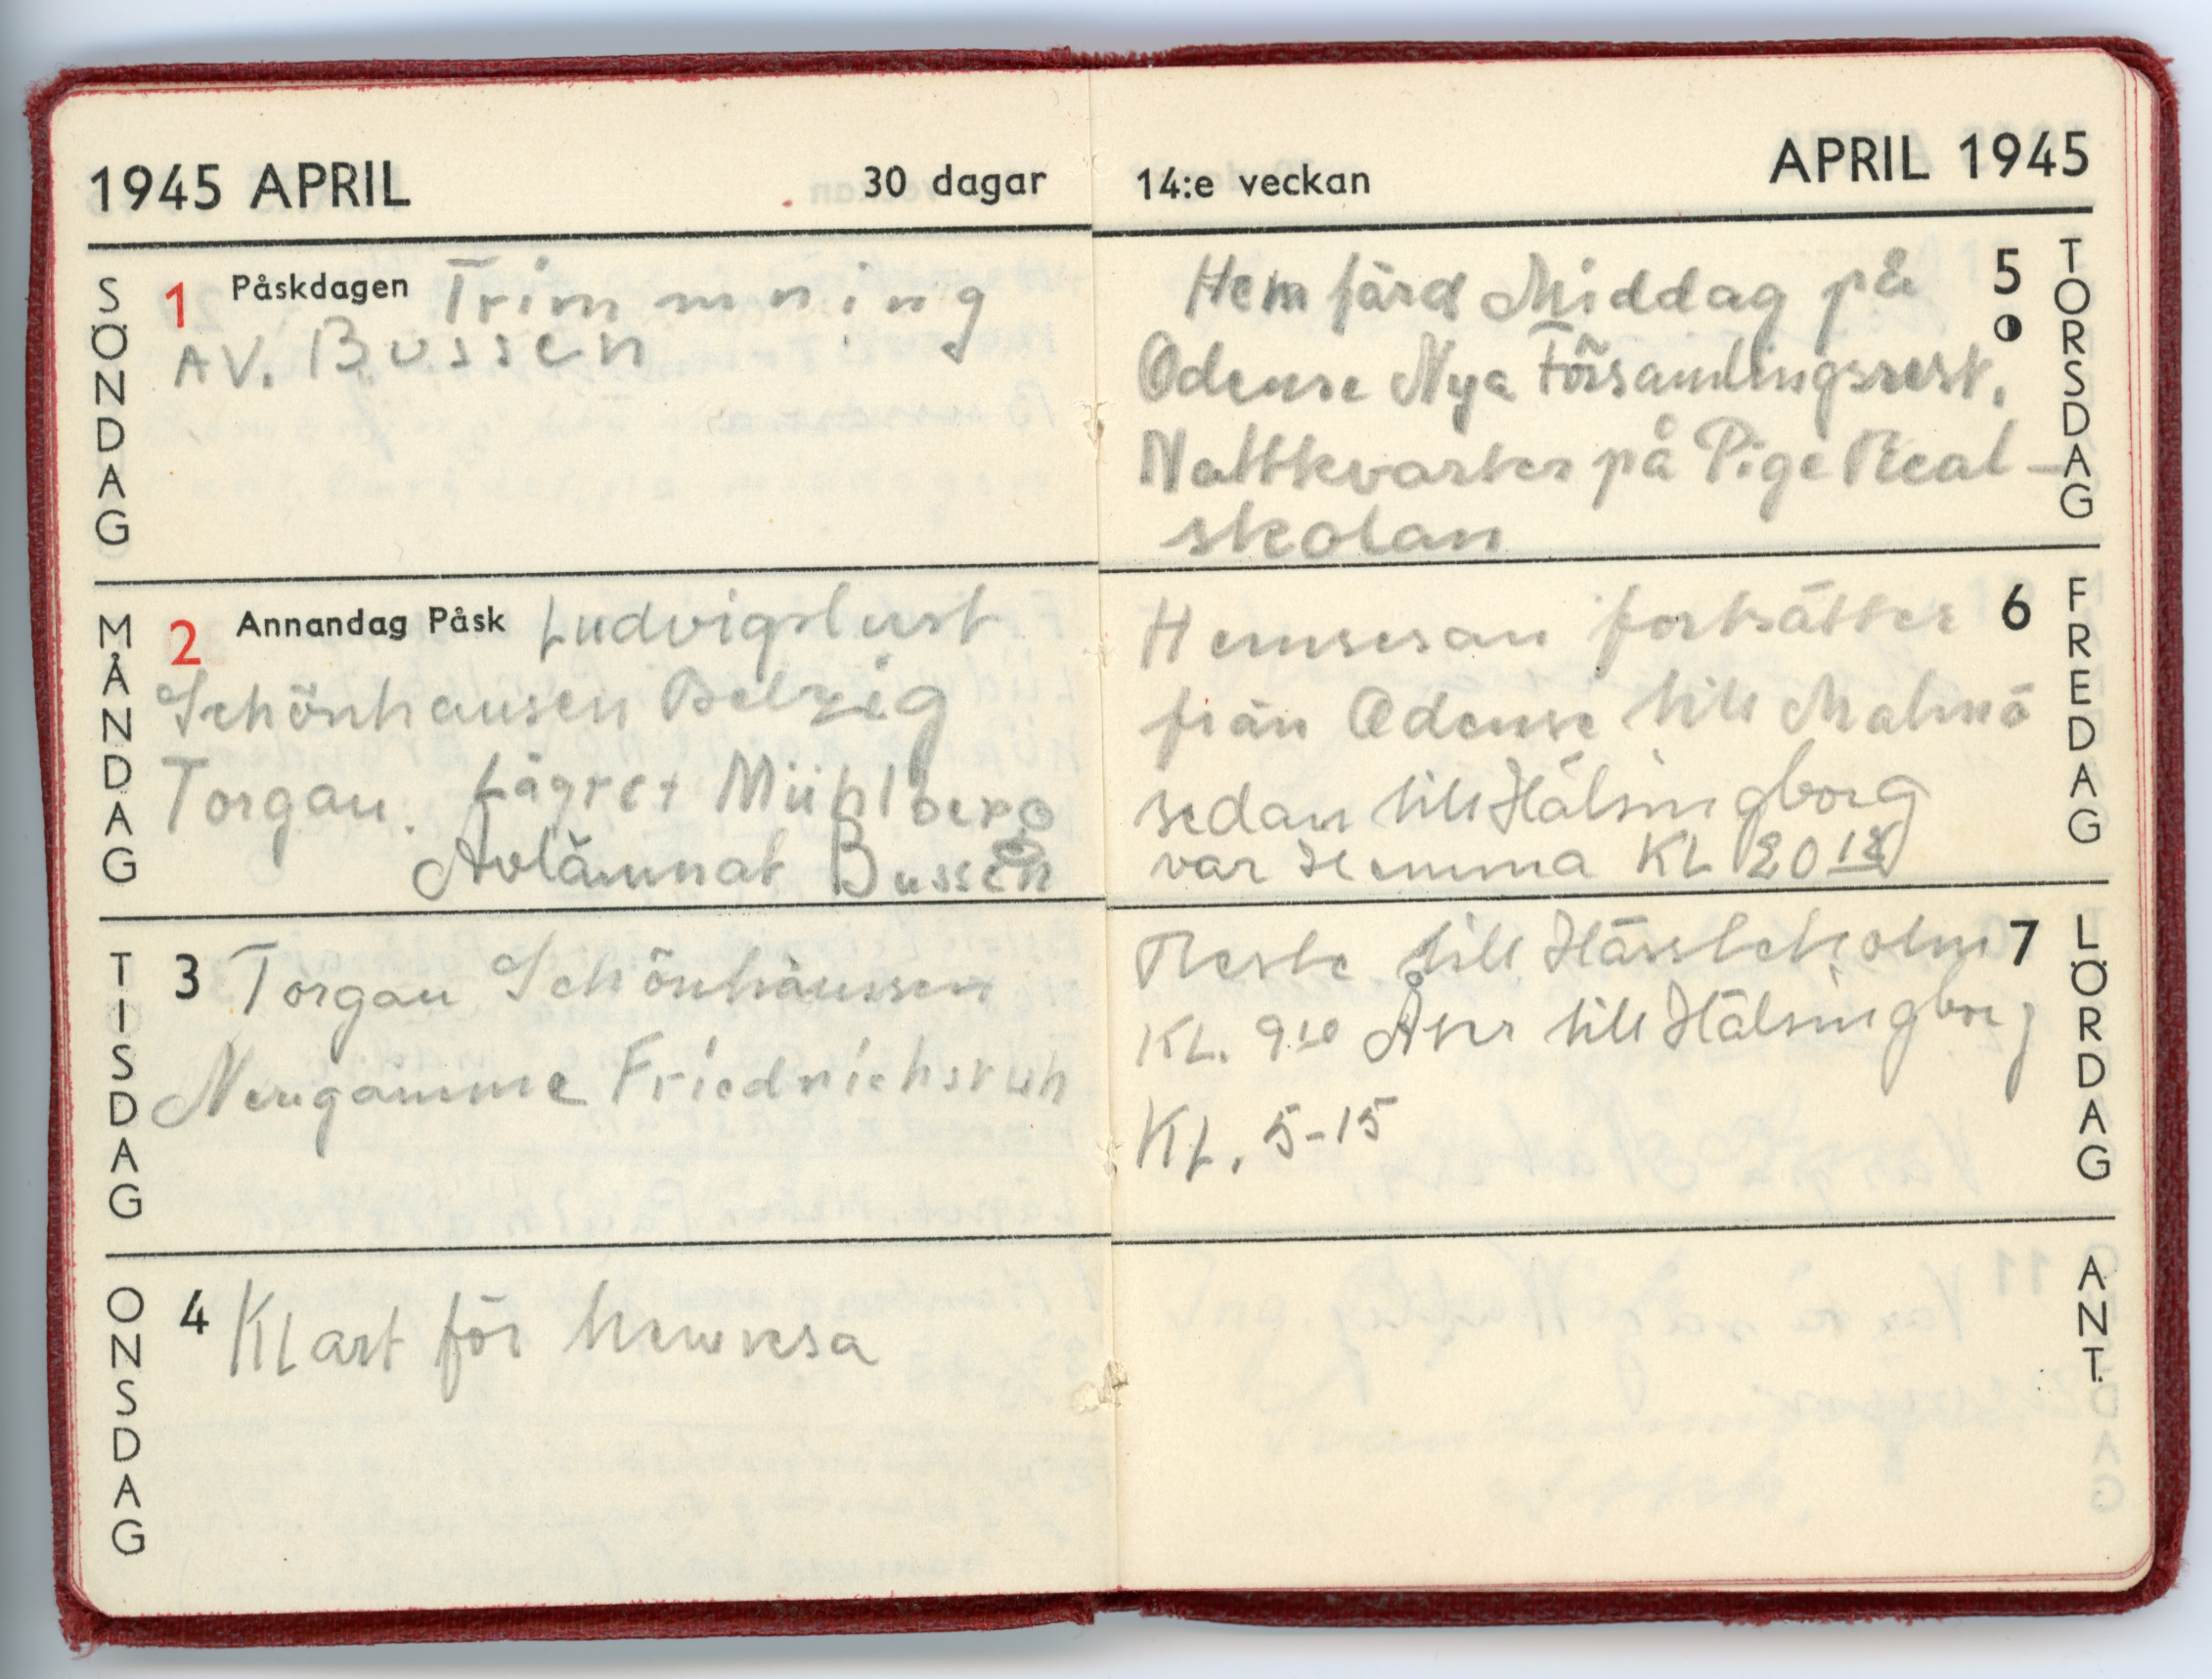 1945 APRIL 30 dagar
SÖNDAG
1 Påskdagen Trimmning
AV. Bussen
MÅNDAG
2 Annandag Påsk Ludvigslust
Schönhausen Belzig
Torgau. Lägret Mühlberg
Avlämnat Bussen
TISDAG
3 Torgau Schönhaussen
Neugamme Friedrichsruh
ONSDAG
4 Klart för hemresa
14:e veckan APRIL 1945
TORSDAG
Hemfärd Middag på 5
Odense Nya Församlingsrest.
Nattkvarter på Pige Real-
skolan
FREDAG
Hemresan fortsätter 6
från Odense till Malmö
sedan till Hälsingborg
var Hemma KL 20
LÖRDAG
Reste till Hässleholm 7
KL. 9 10 Åter till Hälsingborg
KL. 5-15
ANT.